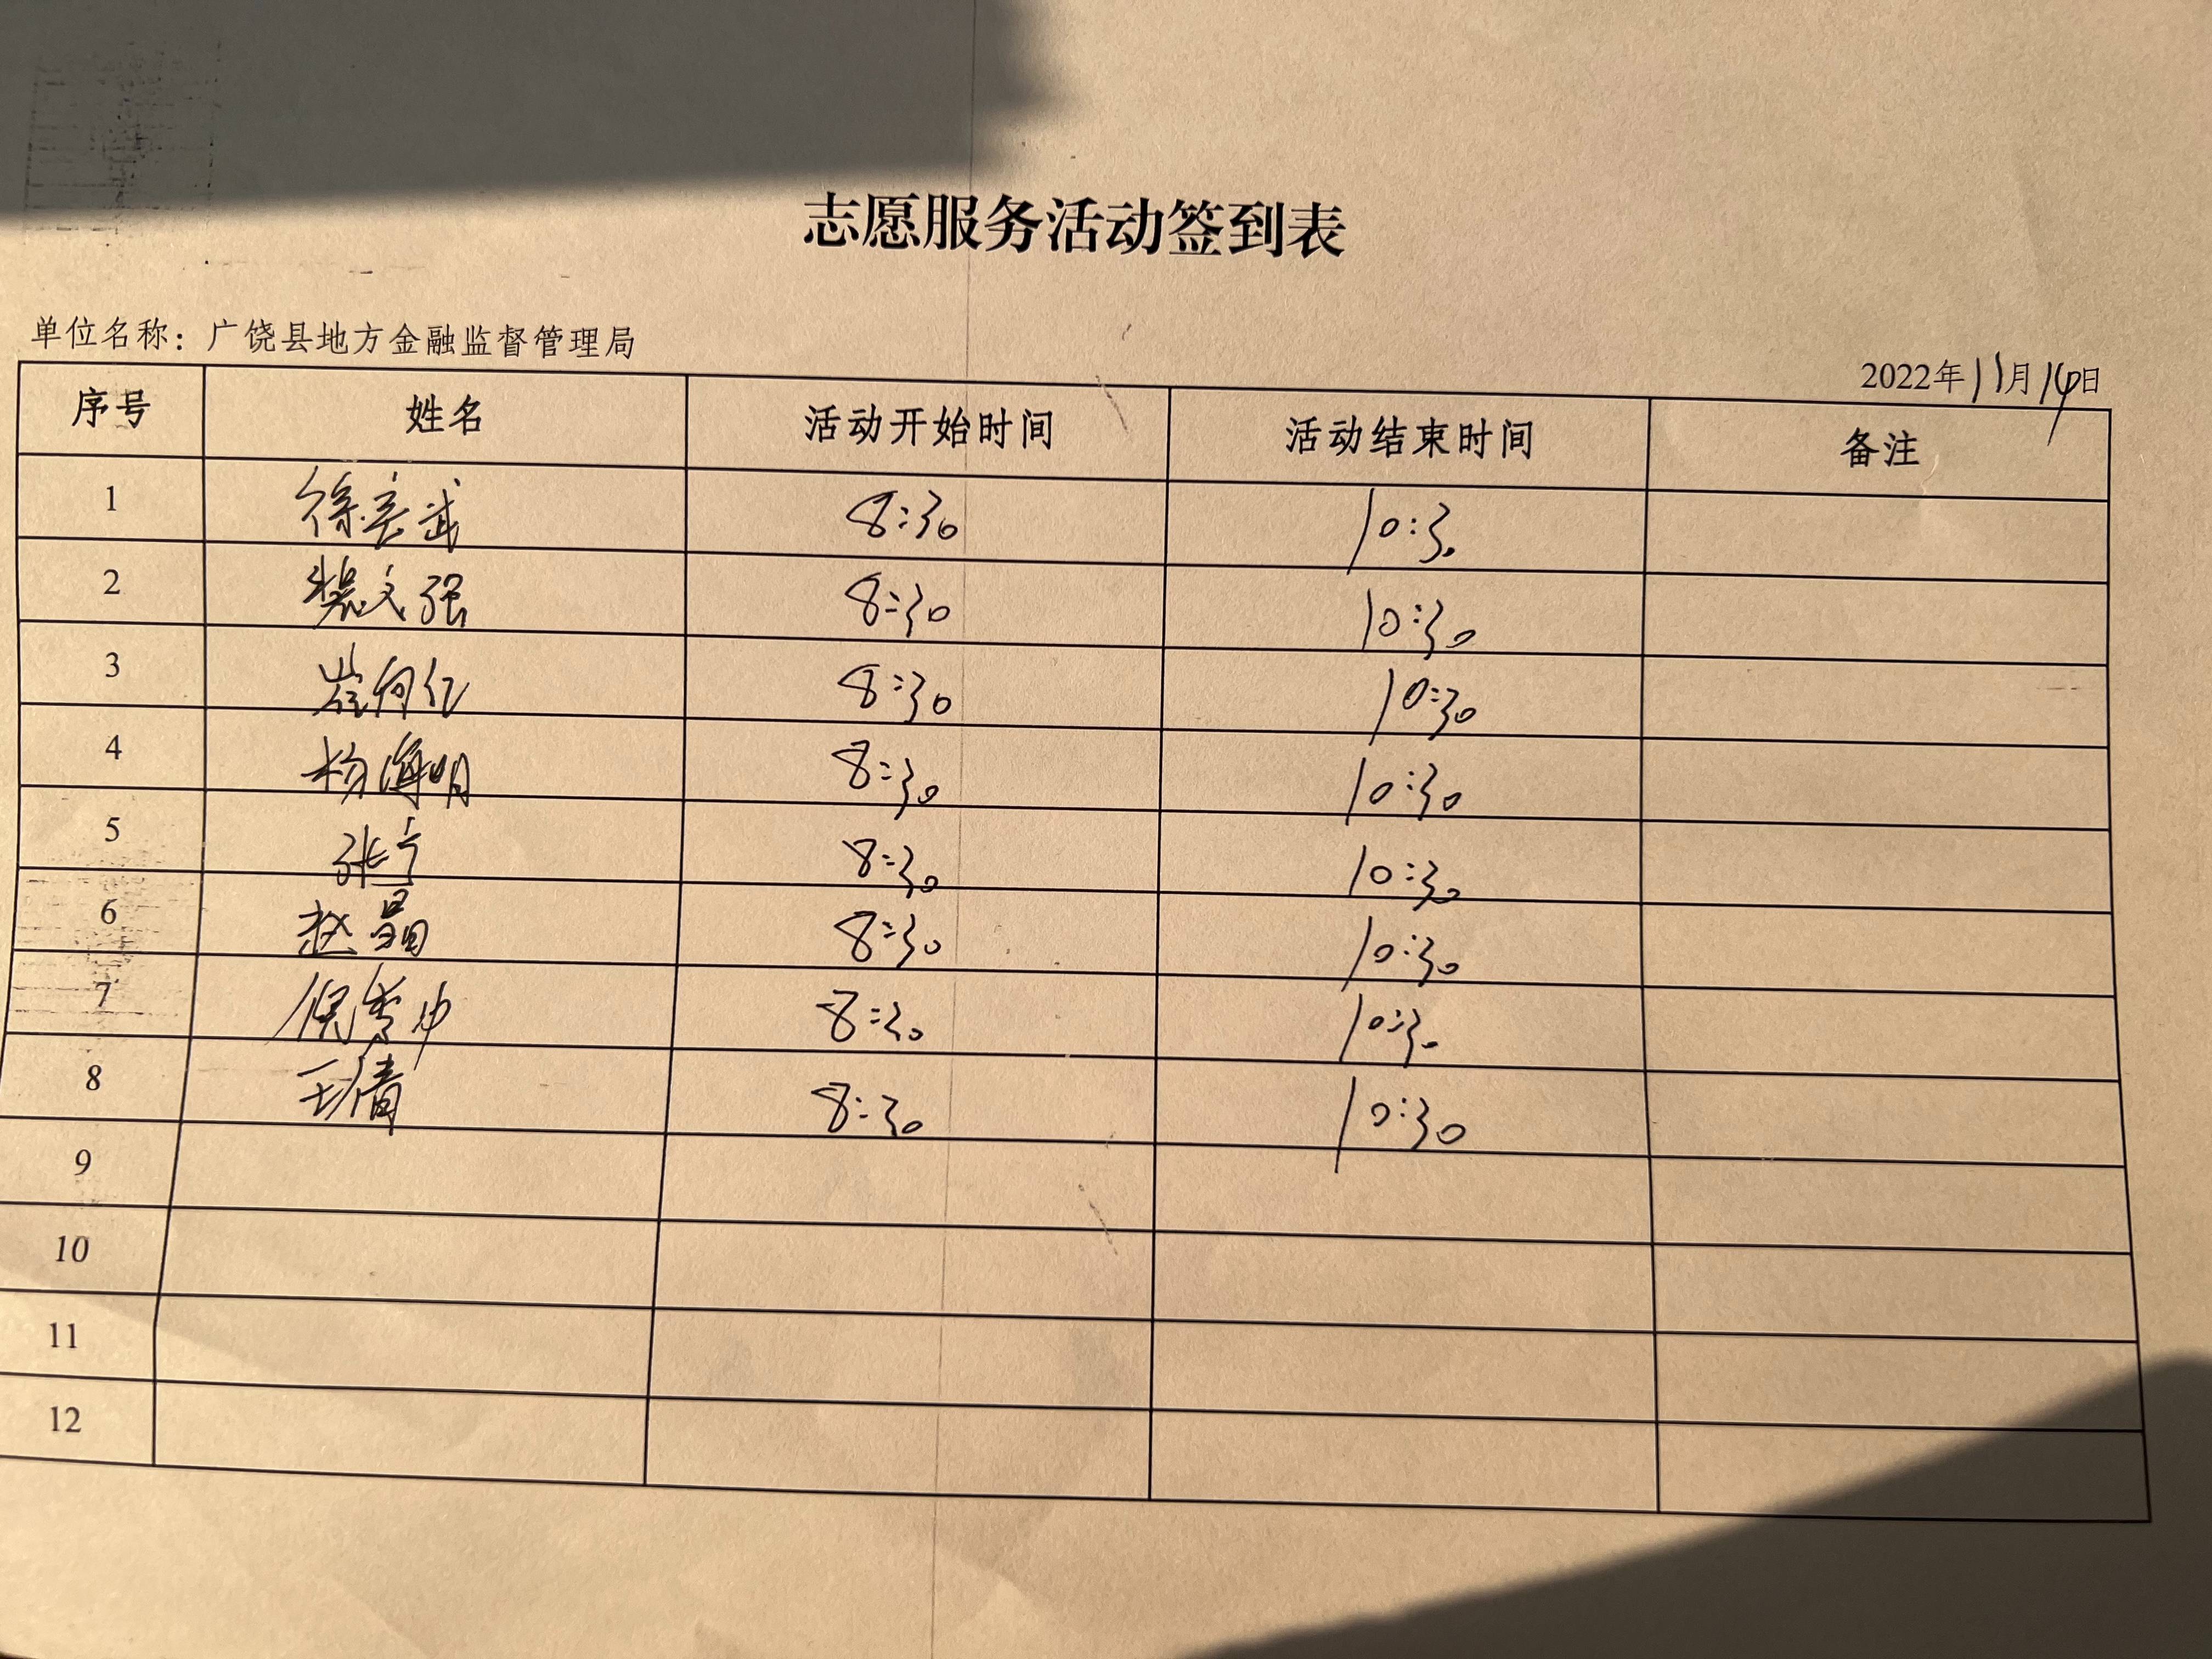 志愿服务活动签到表
单位名称：广饶县地方金融监督管理局
2022年11月14日
序号 姓名 活动开始时间 活动结束时间 备注
1 8:30 10:30
2 文强 8:30 10:30
3 8:30 10:30
4 杨海明 8:30 10:30
5 张宁 8:30 10:30
6 赵晶 8:30 10:30
7 8:30 10:30
8 王倩 8:30 10:30
9
10
11
12